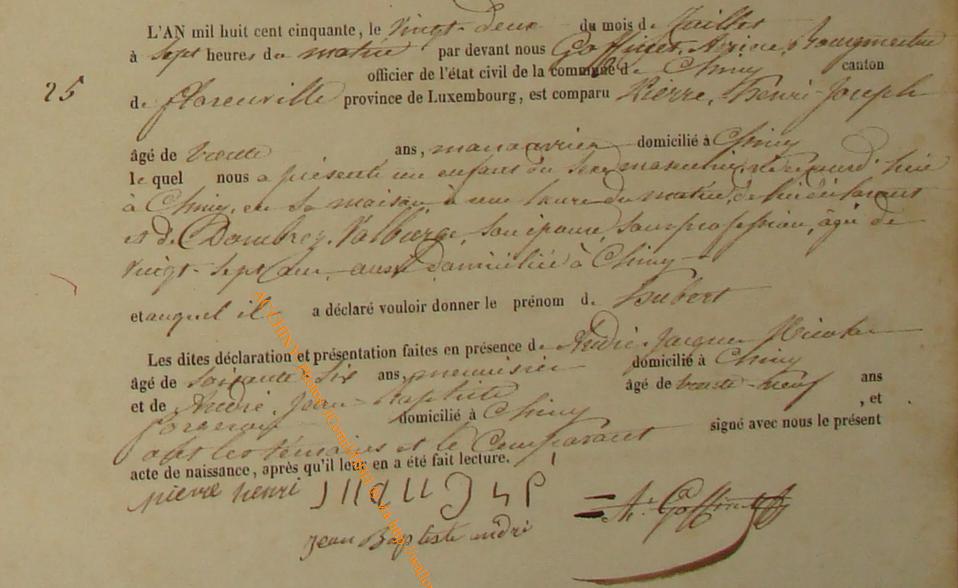 L'AN mil huit cent cinquante, le vingt-deux du mois de Juillet
à sept heures du matin par devant nous Goffinet, Bourgmestre
officier de l'état civil de la commune de Chiny canton
25
de florenville province de Luxembourg, est comparu Pierre, henri-Joseph
âgé de trente ans, manouvrier domicilié à Chiny
le quel nous a présenté un enfant du sexe masculin, né aujourd'hui
à Chiny, en sa maison à une heure du matin, de lui déclarant
et de Dombrey, Valburge, son épouse, sans profession, âgée de
vingt-sept ans, aussi domiciliée à Chiny
et auquel il a déclaré vouloir donner le prénom de hubert
Les dites déclaration et présentation faites en présence de André, Jacques Nicolas
âgé de soixante-six ans, menuisier domicilié à Chiny
et de André, Jean-Baptiste âgé de trente-neuf ans
forgeron domicilié à Chiny , et
ont les témoins et le Comparant signé avec nous le présent
acte de naissance, après qu'il leur en a été fait lecture.
pierre henri
At. Goffinet
jean Baptiste andré